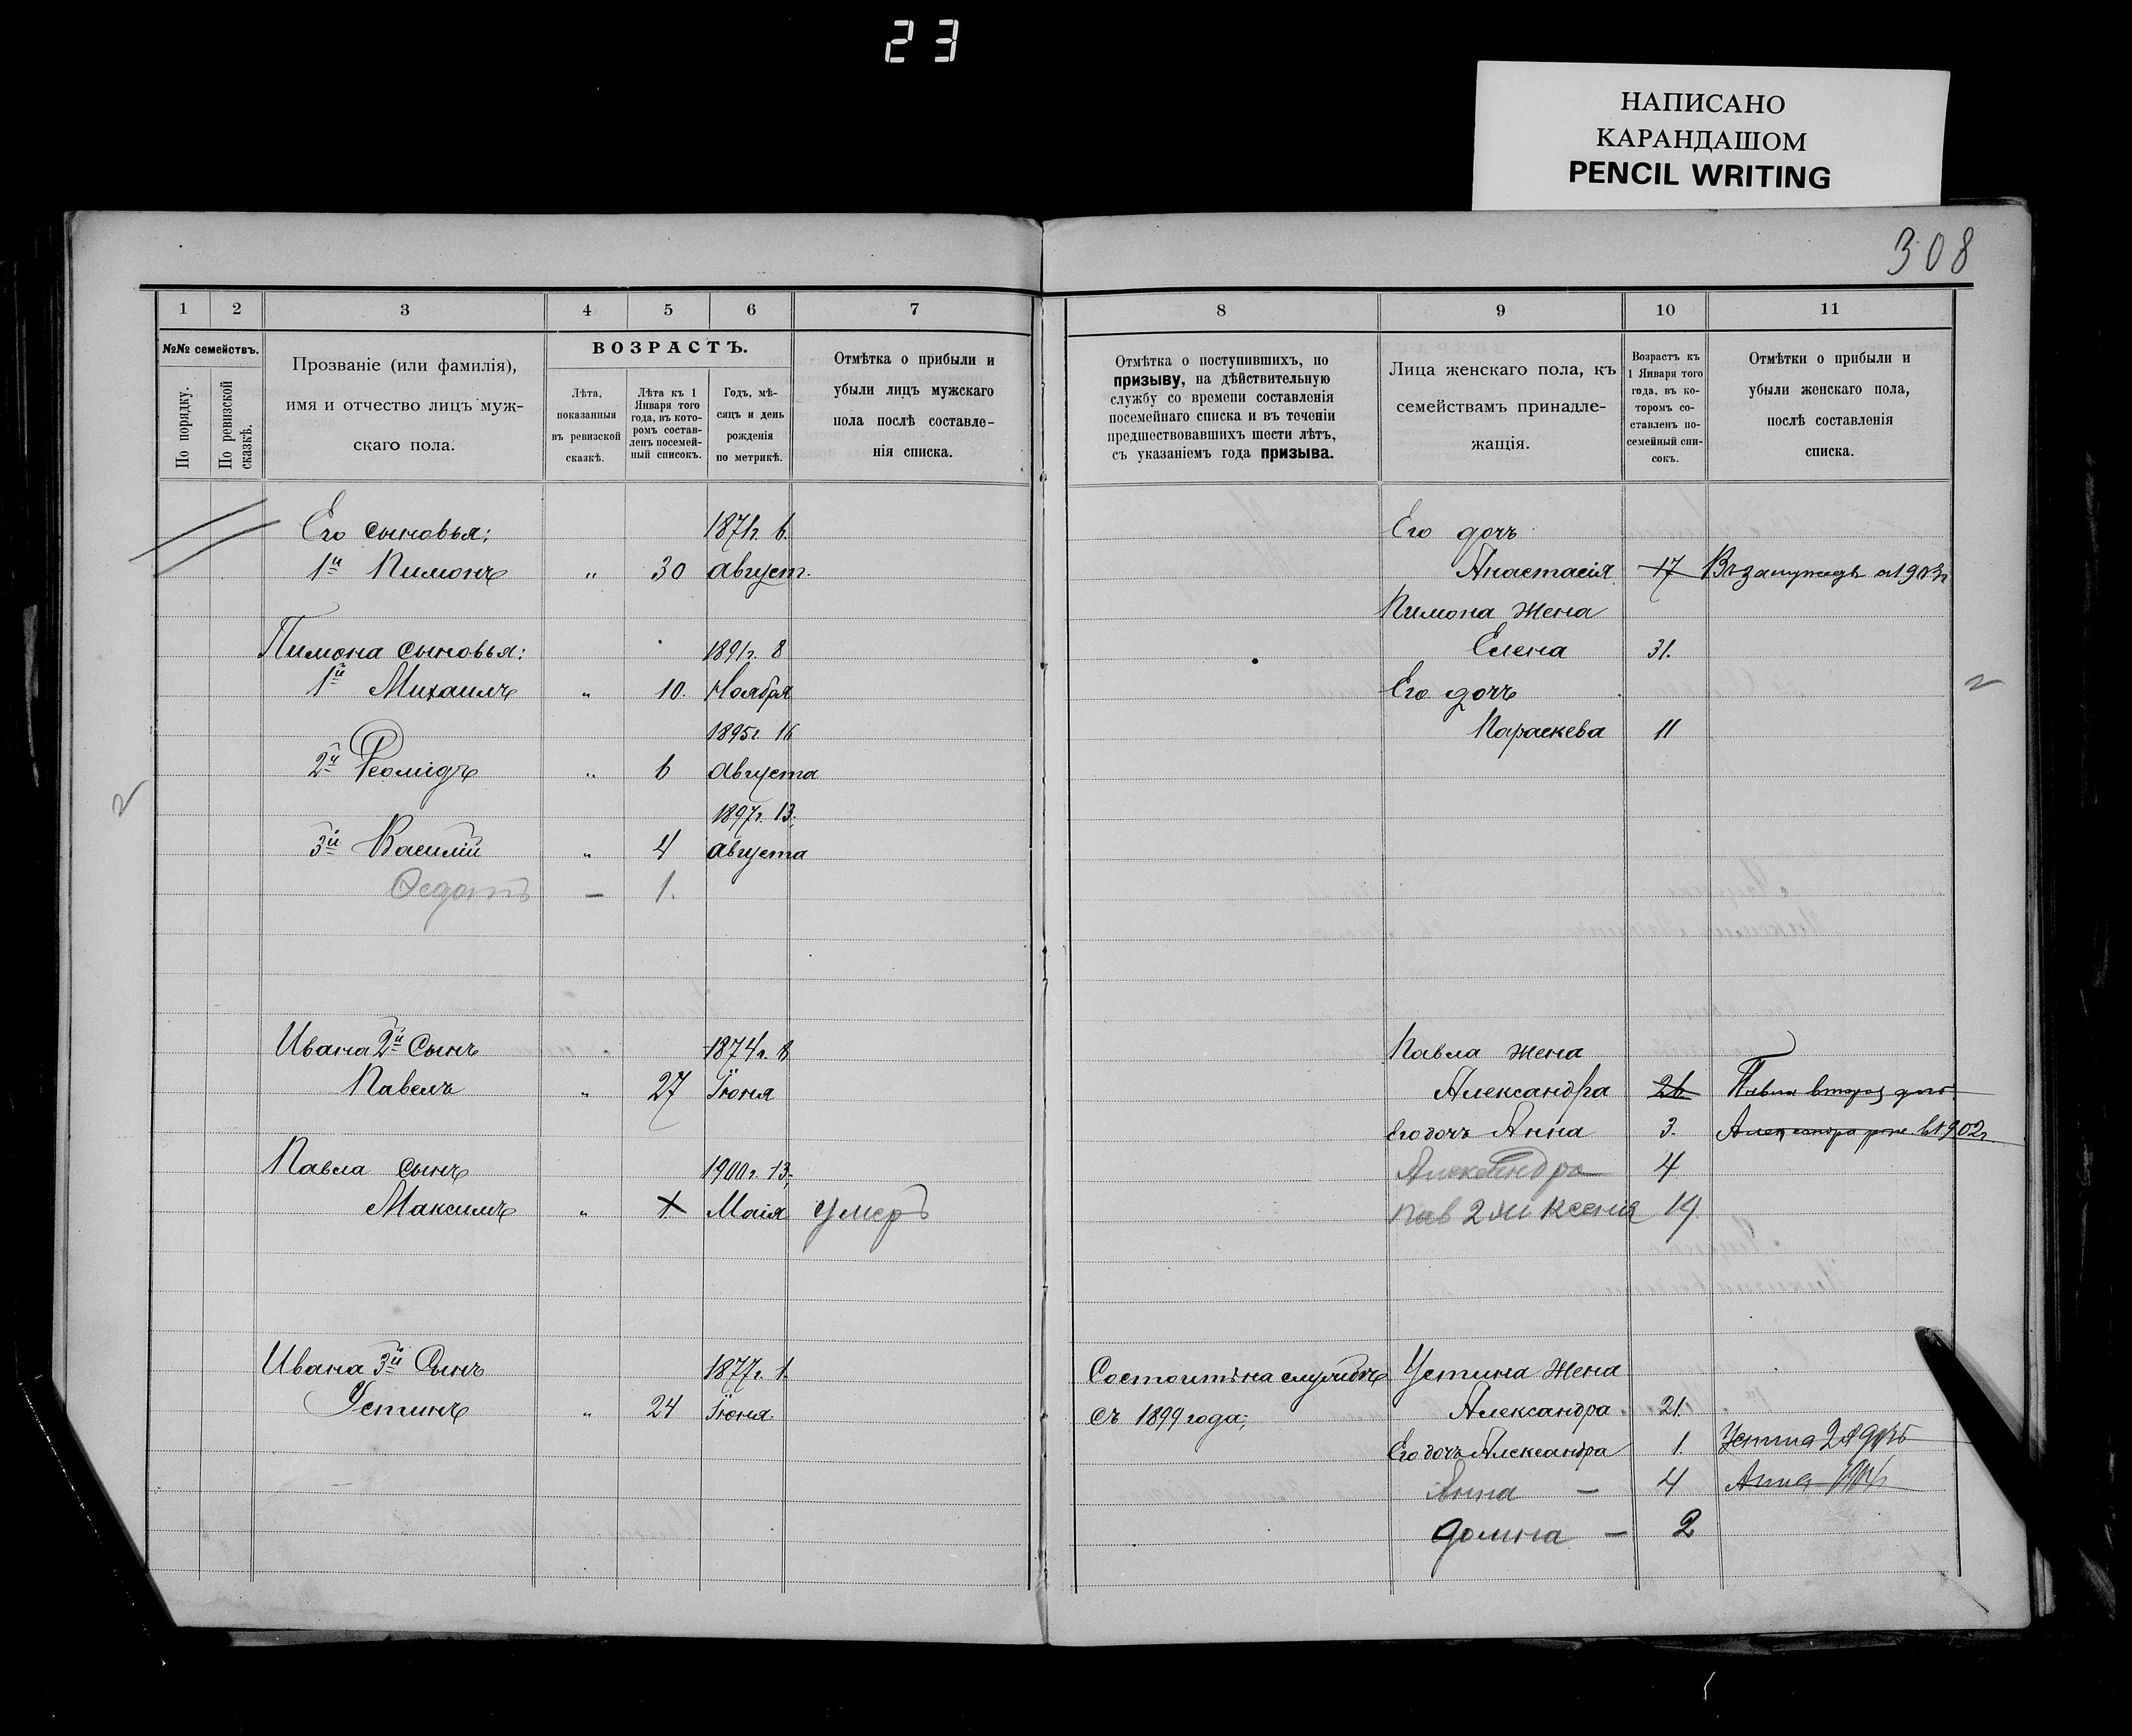 23
НАПИСАНО
КАРАНДАШОМ
PENCIL WRITING
308
1 2 3 4 5 6 7
№№ семействъ.
По порядку.
По ревизской сказкѣ.
Прозваніе (или фамилія),
имя и отчество лицъ муж-
скаго пола.
ВОЗРАСТЪ.
Лѣта,
показанныя
въ ревизской
сказкѣ.
Лѣта къ 1
Января того
года, въ кото-
ромъ состав-
ленъ посемей-
ный списокъ.
Годъ, мѣ-
сяцъ и день
рожденія
по метрикѣ.
Отмѣтка о прибыли и
убыли лицъ мужскаго
пола послѣ составле-
нія списка.
Его сыновья: 1871г. 6.
1й Пимонъ " 30 август.
Пимона сыновья: 1891г. 8
1й Михаилъ " 10. Ноября
1895г. 16
2й Леомидъ " 6 августа
1897г. 13.
3й Василій " 4 августа
Федотъ — 1.
Ивана 2й Сынъ 1874г. 8
Павелъ " 27 Іюня
Павла сынъ 1900г. 13.
Максимъ " 1 Маія умеръ
Ивана 3й Сынъ 1877г. 1.
Устинъ " 24 Іюня.
8 9 10 11
Отмѣтка о поступившихъ, по
призыву, на дѣйствительную
службу со времени составленія
посемейнаго списка и въ теченіи
предшествовавшихъ шести лѣтъ,
съ указаніемъ года призыва.
Лица женскаго пола, къ
семействамъ принадле-
жащія.
Возрастъ къ
1 Января того
года, въ ко-
торомъ со-
ставленъ по-
семейный спи-
сокъ.
Отмѣтки о прибыли и
убыли женскаго пола,
послѣ составленія
списка.
Его дочь
Анастасія 17 Въ замужедъ в1903г
Пимона жена
Елена 31.
Его дочь
Параскева 11
Павла жена
Александра 26 Павла вторая дочь
Его дочь Анна 3. Александра рож. в1902г.
Александра 4
Пав 2 ж Ксенія 19
Состоитъ на службѣ Устина жена
съ 1899 года; Александра 21.
Его дочь Александра 1. Устина 2я дочь
Анна — 4 Анна 1904г
Домна — 2